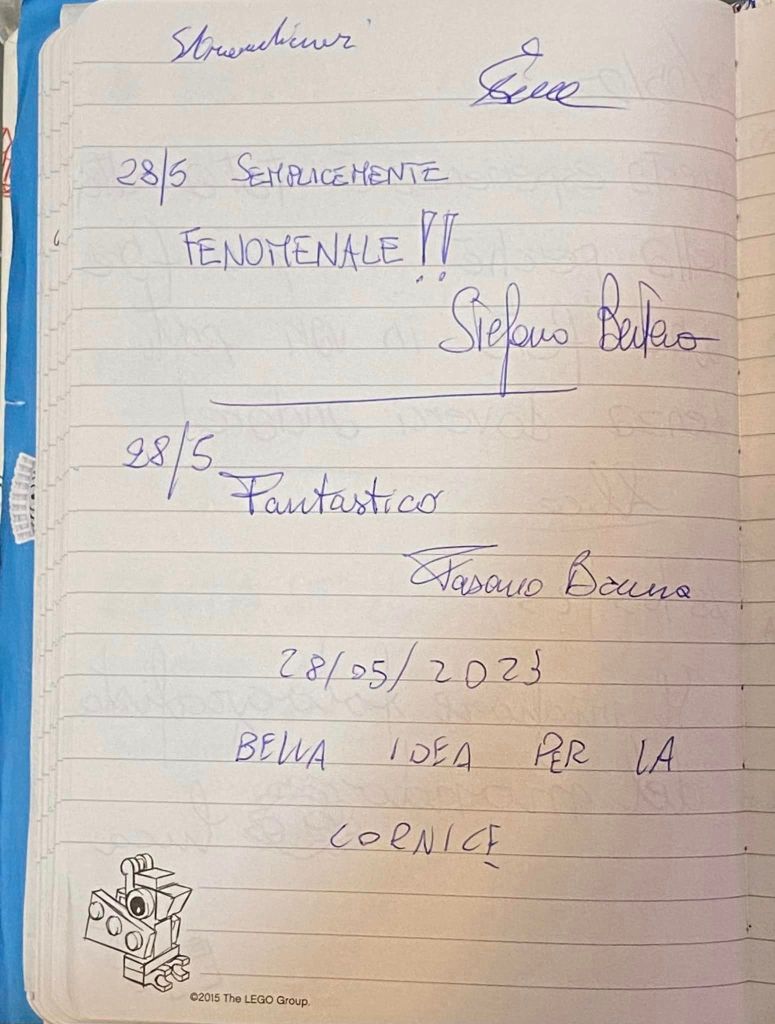 28/5 SEMPLICEMENTE
FENOMENALE!!
Stefano
28/5
Fantastico
Fasano Bruno
28/05/2023
BELLA IDEA PER LA
CORNICE
©2015 The LEGO Group.